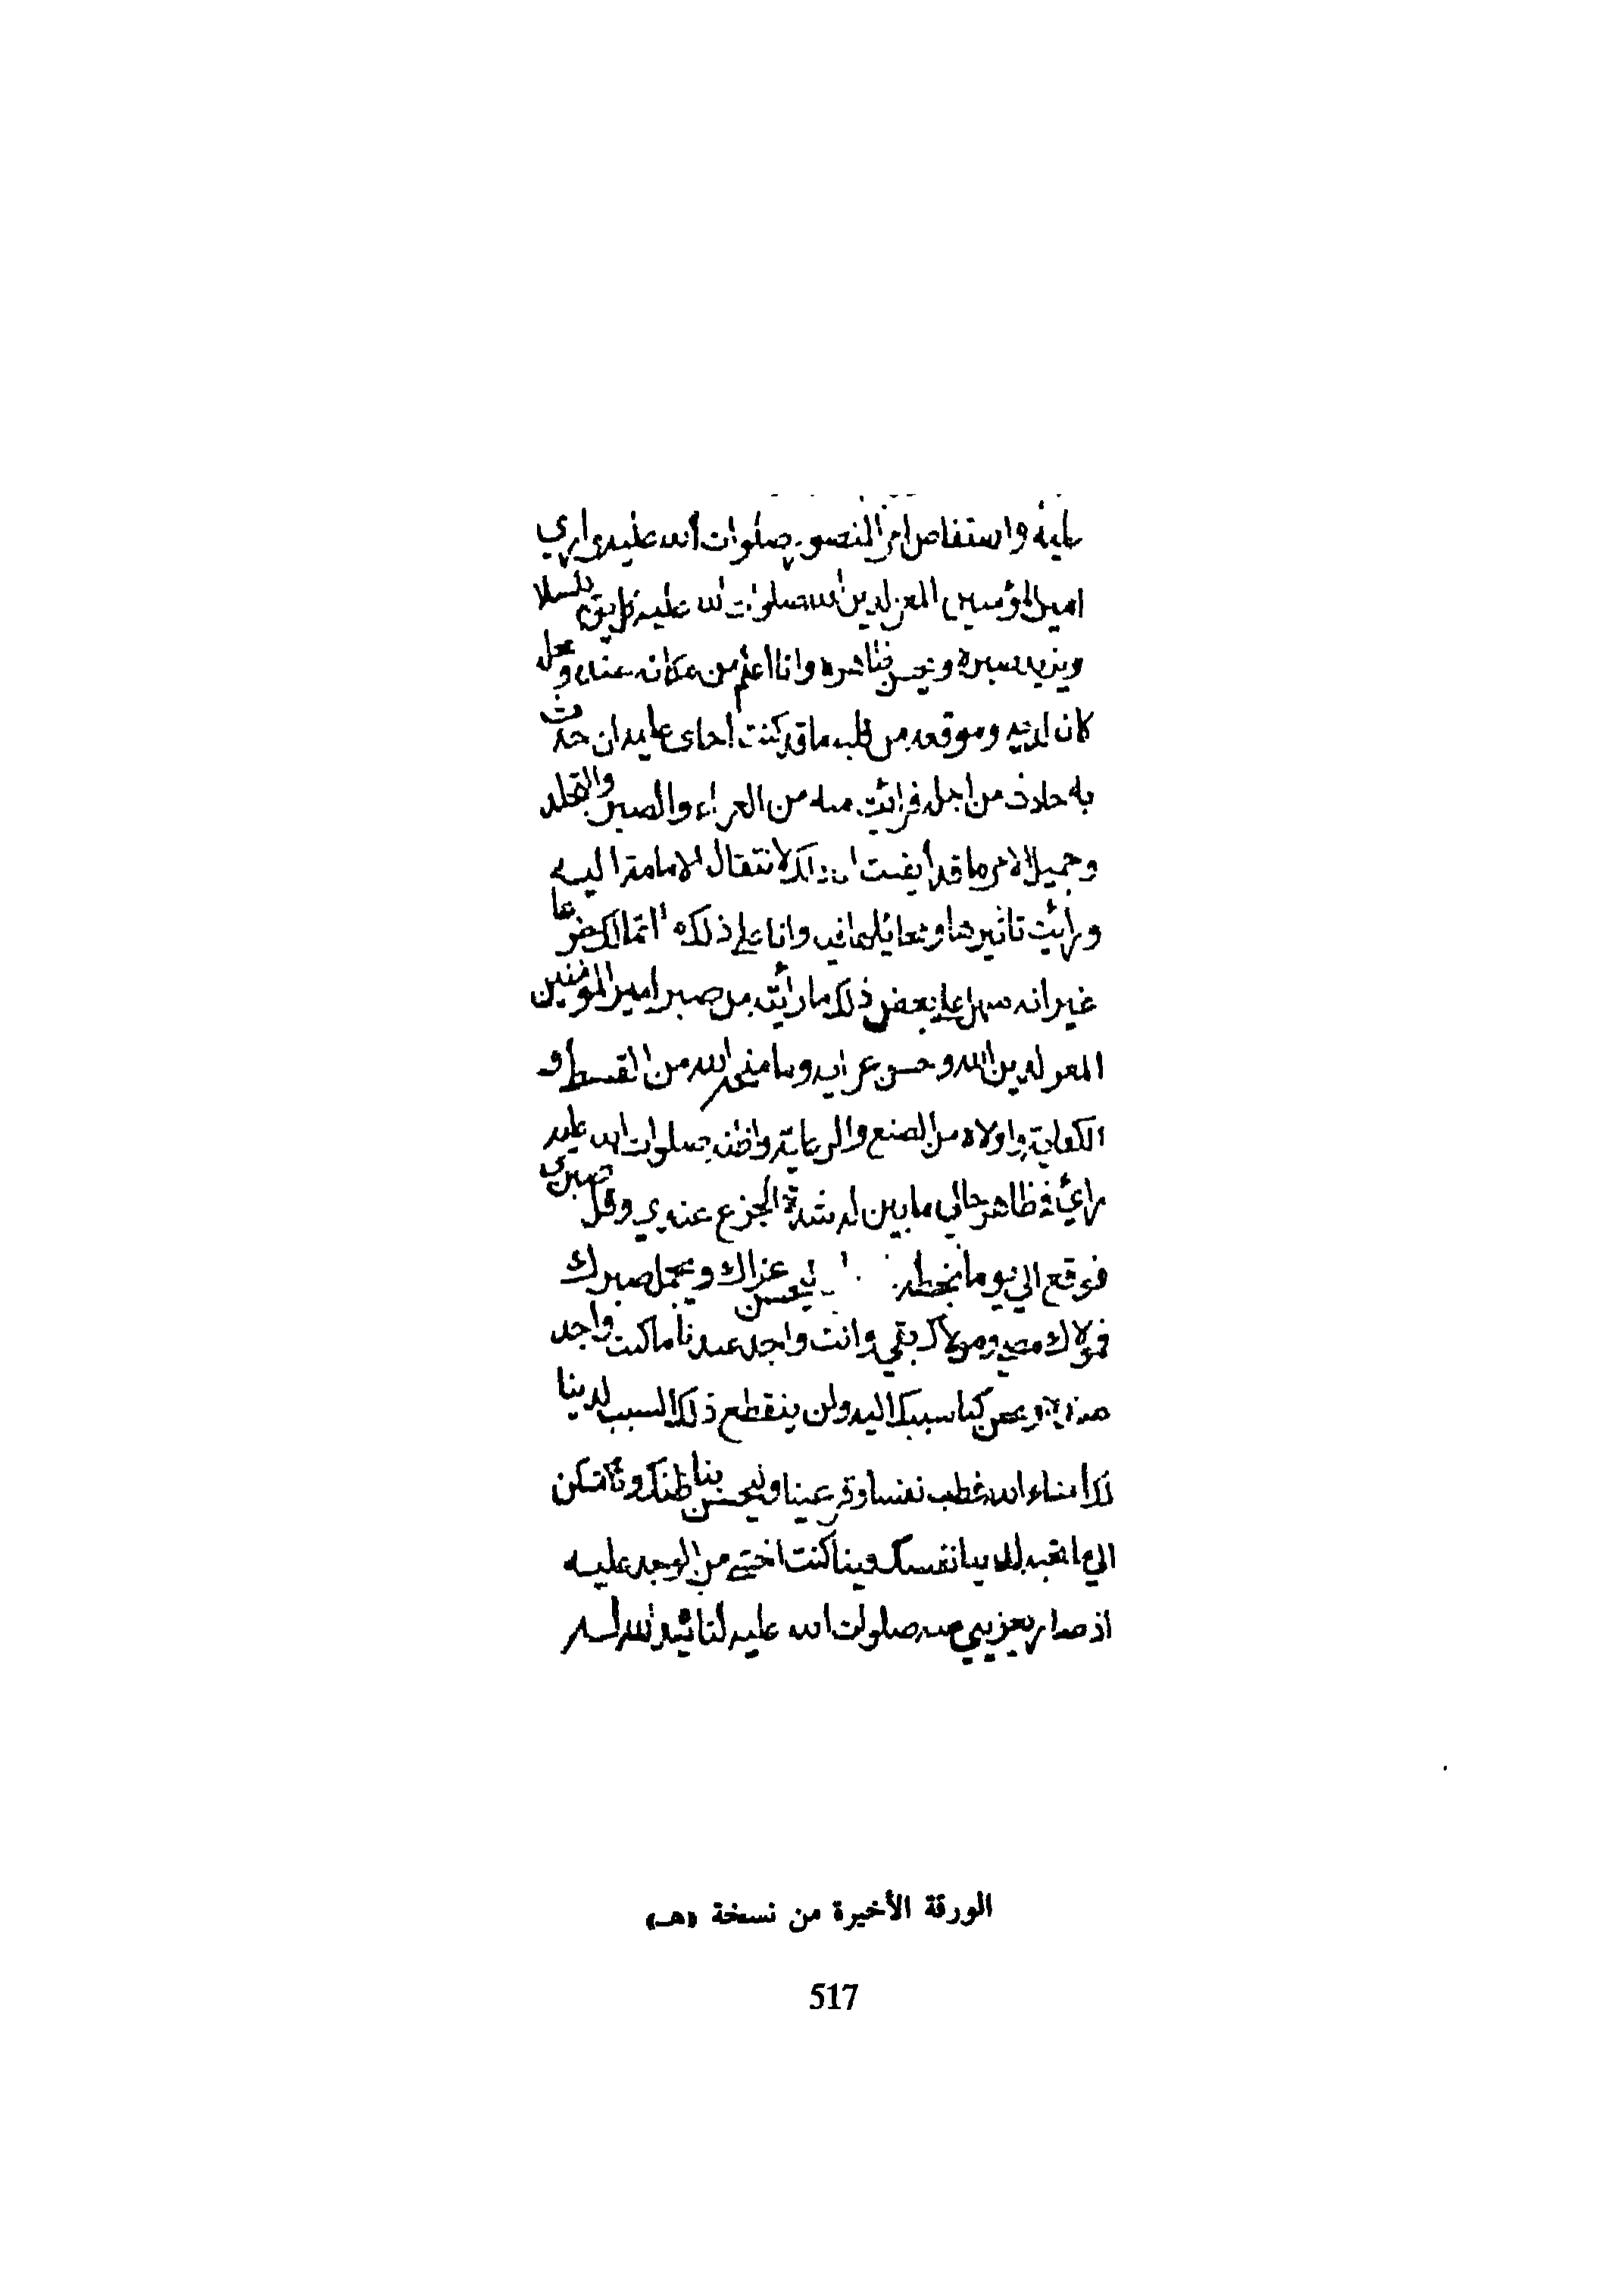 واستفاض امر المنصور صلوات الله عليه واري
امير المؤمنين المعز لدين الله صلوات الله عليه
ويزيد صبره ويحسن ظاهره وانا اعلم من مكانه عنده ومحل
كان لديه وموقعه من قلبه ما قد كنت اخاف عليه ان حدث
به حادث من اجله فرائت منه من العزاء والصبر والتجلد
وجميل الامر ما قد أيقنت ان ذلك لانتقال الامامة اليه
ورائت تاثيرها فيه وانا على ذلك ما اتمالك
غير انه سهل علي بعض ذلك ما رأيته من صبر امير المؤمنين
المعز لدين الله وحسن عزايه وما منحه الله من القسط و
الكفاية واولاه من الصنع والرعاية واظنه صلوات الله عليه
رائ في ظاهر حالي ما بين له شدة الجزع عندي وقل صبري
فوقع الي يوما بخطه ليحسن عزاك ويجمل صبرك
فمولاك مضى ومولاك بقي وانت واجد عندنا ما كنت واجد
عنده ونحن كنا سببك اليه ولن ينقطع ذلك السبب لدينا
لك انشاء الله فطب نفسا وقر عينا وليحسن بنا ظنك ولتسكن
الي ما تحبه لدينا نفسك فينا كنت اخشى من الوجد عليه
اذ صار يعزيني عنه صلوات الله عليه لتائيد الله له
الورقة الأخيرة من نسخة «هـ»
517